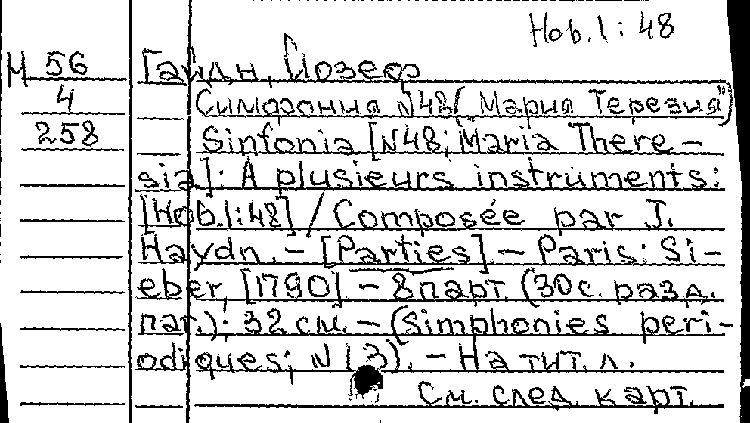 Hob.I:48
М 56 Гайдн, Йозеф
4 Симфония N48("Мария Терезия")
258 Sinfonia [N48; Maria There-
sia]: A plusieurs instruments:
[Hob.I:48] / Composée par J.
Haydn. - [Parties]. - Paris: Si-
eber, [1790] - 8 парт. (30с. разд.
паг.); 32 см. - (Simphonies peri-
odiques; N 13). - На тит. л.
См. след. карт.